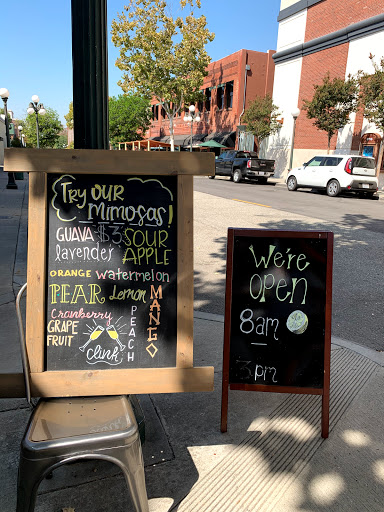 Try OUR
MIMOSAS!
GUAVA $3 SOUR
lavender APPLE
ORANGE watermelon
PEAR Lemon
Cranberry
GRAPE
FRUIT
clink
PEACH
MANGO
We're
Open
8am
3pm